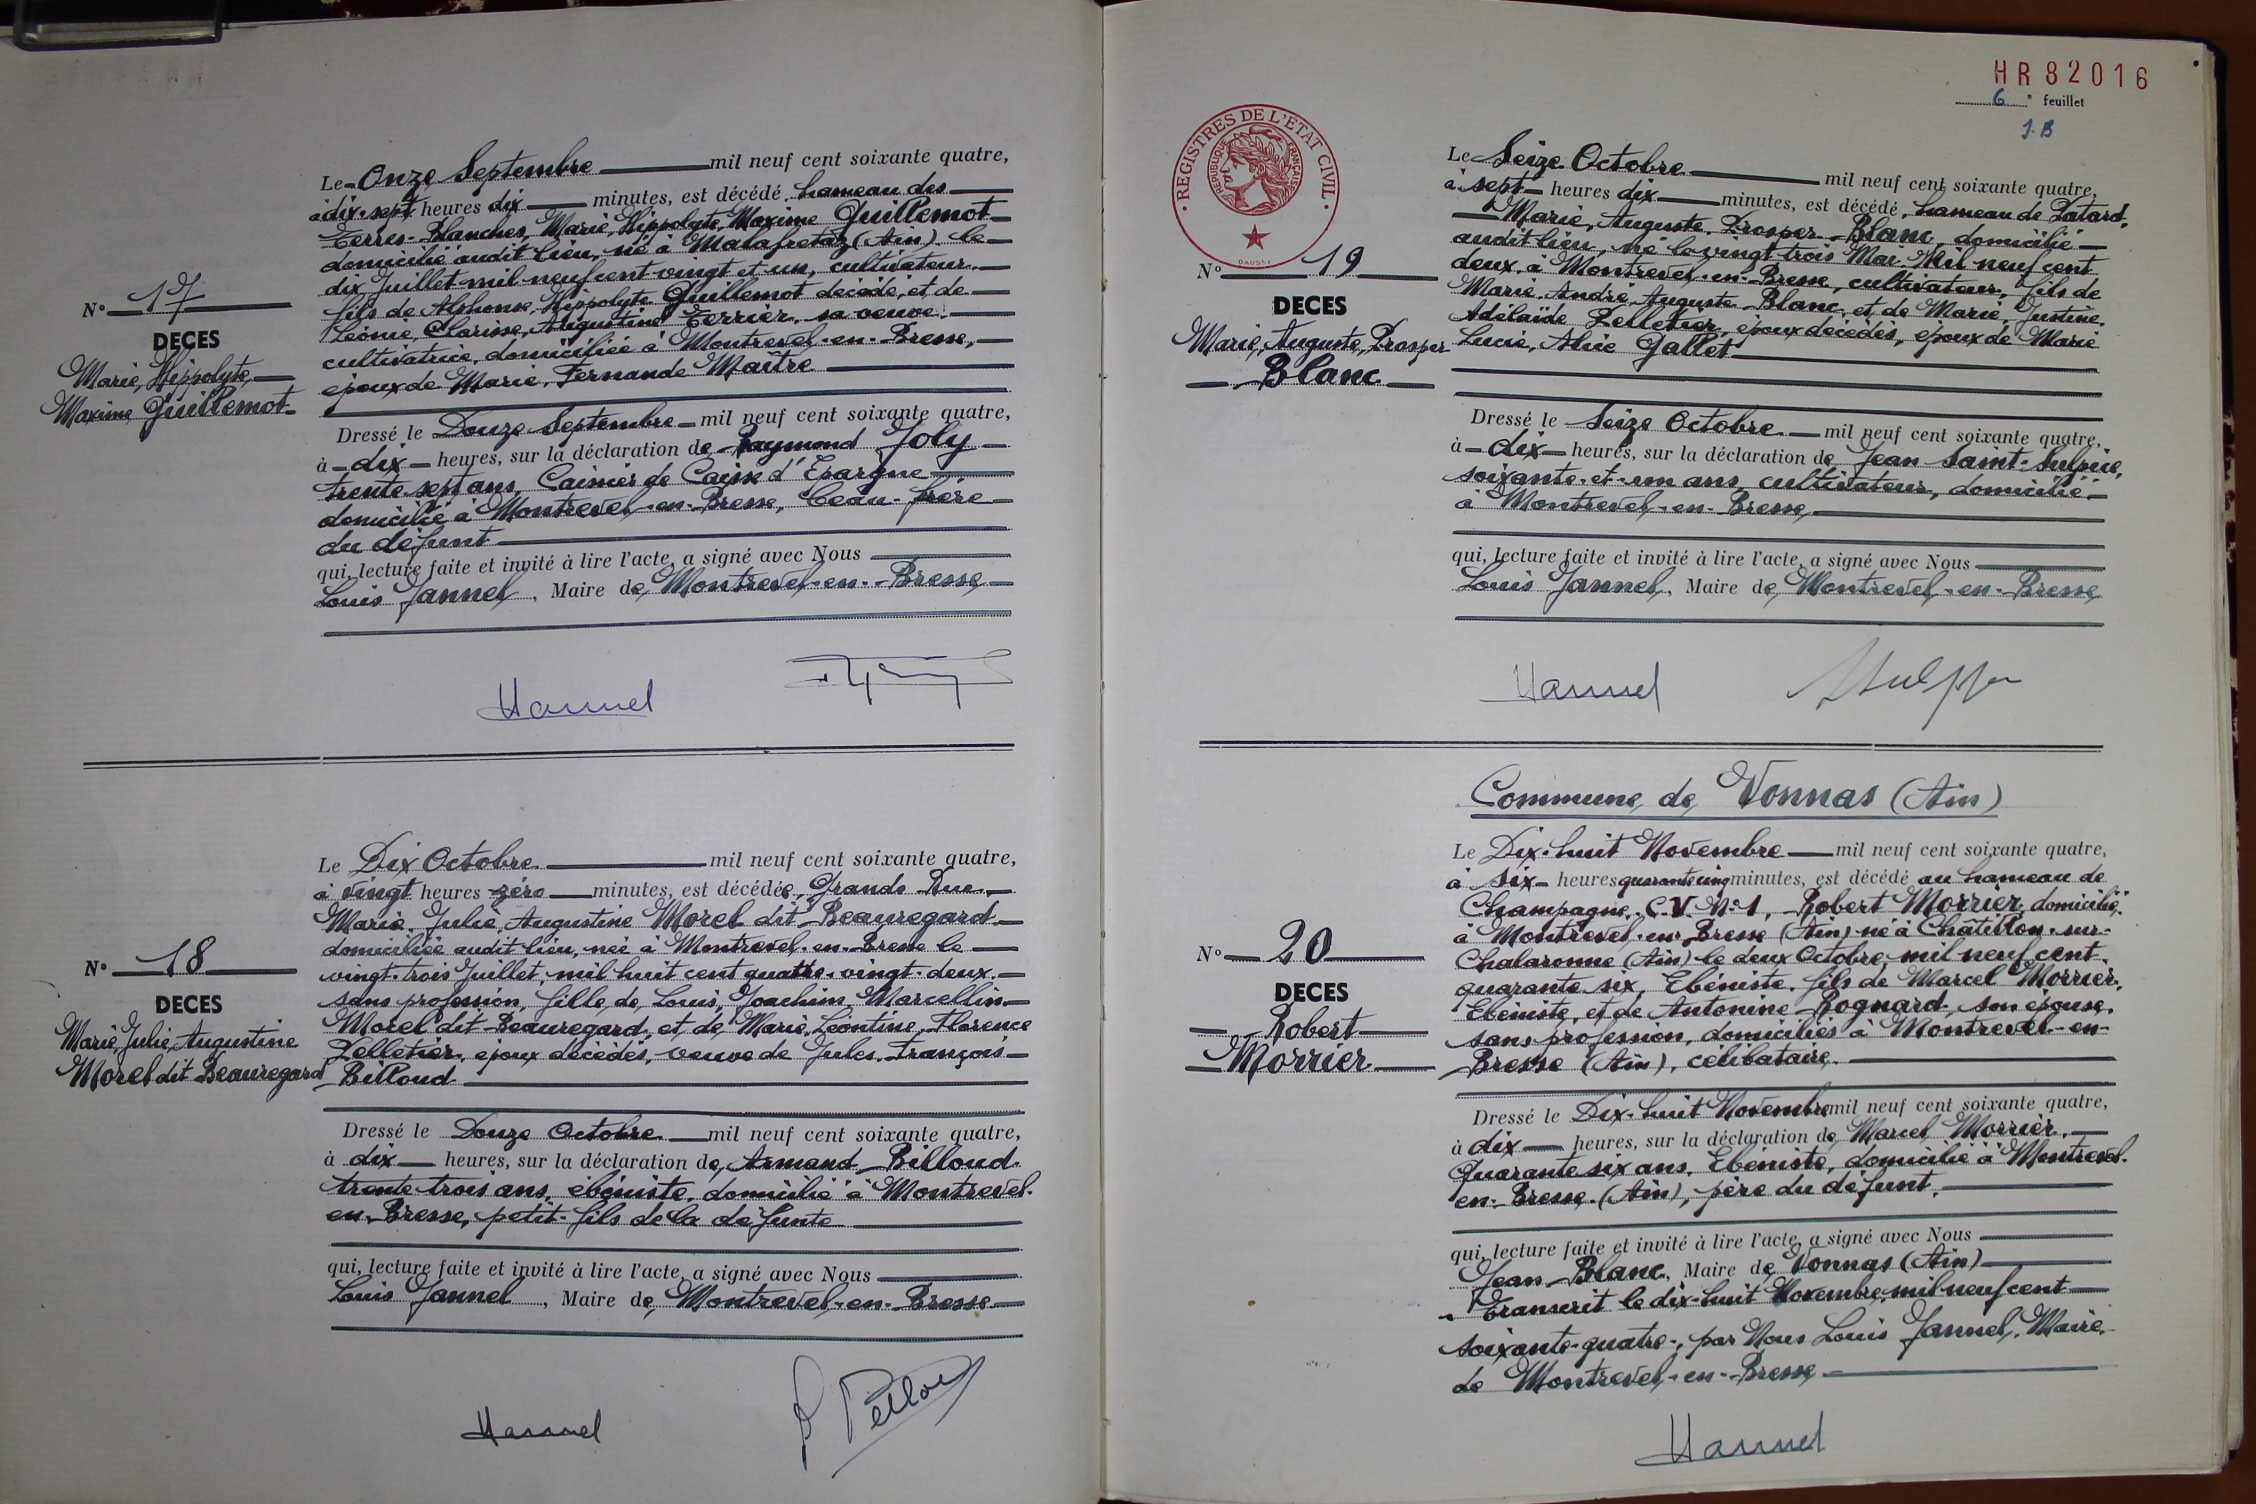 Le Onze Septembre mil neuf cent soixante quatre,
à dix-sept heures dix minutes, est décédé, hameau des
Terres-Blanches, Marie, Hippolyte, Maxime Guillemot
domicilié audit lieu, né à Malafretaz (Ain) le
dix Juillet mil neuf cent vingt et un, cultivateur,
fils de Alphonse, Hippolyte Guillemot décédé, et de
Léonie, Clarisse, Augustine Terrier, sa veuve,
cultivatrice, domiciliée à Montrevel-en-Bresse,
époux de Marie, Fernande Maître
N° 17
DECES
Marie, Hippolyte,
Maxime Guillemot
Dressé le Douze Septembre mil neuf cent soixante quatre,
à dix heures, sur la déclaration de Raymond Joly
trente sept ans, Caissier de Caisse d'Epargne
domicilié à Montrevel-en-Bresse, beau-frère
du défunt
qui, lecture faite et invité à lire l'acte, a signé avec Nous
Louis Jannel, Maire de Montrevel-en-Bresse
Jannel
Le Dix Octobre mil neuf cent soixante quatre,
à vingt heures zéro minutes, est décédée, Grande Rue,
Marie, Julie, Augustine Morel dit Beauregard
domiciliée audit lieu, née à Montrevel-en-Bresse le
vingt-trois Juillet, mil huit cent quatre-vingt-deux,
sans profession, fille de Louis, Joachim, Marcellin
Morel dit Beauregard, et de Marie, Léontine, Florence
Pelletier, époux décédés, veuve de Jules, François
Billoud
N° 18
DECES
Marie, Julie, Augustine
Morel dit Beauregard
Dressé le Douze Octobre mil neuf cent soixante quatre,
à dix heures, sur la déclaration de Armand Billoud
trente-trois ans, ébéniste, domicilié à Montrevel-
en-Bresse, petit-fils de la défunte
qui, lecture faite et invité à lire l'acte, a signé avec Nous
Louis Jannel, Maire de Montrevel-en-Bresse
Jannel
HR82016
6e feuillet
J.B
REGISTRES DE L'ETAT CIVIL
REPUBLIQUE FRANÇAISE
Le Seize Octobre mil neuf cent soixante quatre,
à sept heures dix minutes, est décédé, hameau de Patard,
Marie, Auguste, Prosper Blanc, domicilié
audit lieu, né le vingt trois Mai Mil neuf cent
deux, à Montrevel-en-Bresse, cultivateur, fils de
Marie, André, Auguste Blanc, et de Marie, Justine,
Adélaïde Pelletier, époux décédés, époux de Marie
Lucie, Alice Gallet
N° 19
DECES
Marie, Auguste, Prosper
Blanc
Dressé le Seize Octobre mil neuf cent soixante quatre,
à dix heures, sur la déclaration de Jean Saint-Sulpice,
soixante-et-un ans, cultivateur, domicilié
à Montrevel-en-Bresse,
qui, lecture faite et invité à lire l'acte, a signé avec Nous
Louis Jannel, Maire de Montrevel-en-Bresse
Jannel
Commune de Vonnas (Ain)
Le Dix-huit Novembre mil neuf cent soixante quatre,
à six heures quarante cinq minutes, est décédé au hameau de
Champagne, C.V. N°1, Robert Morrier, domicilié
à Montrevel-en-Bresse (Ain) né à Châtillon-sur-
Chalaronne (Ain) le deux Octobre mil neuf cent
quarante six, Ebéniste, fils de Marcel Morrier,
Ebéniste, et de Antonine Rognard, son épouse,
sans profession, domiciliés à Montrevel-en-
Bresse (Ain), célibataire.
N° 20
DECES
Robert
Morrier
Dressé le Dix-huit Novembre mil neuf cent soixante quatre,
à dix heures, sur la déclaration de Marcel Morrier,
Quarante six ans, Ebéniste, domicilié à Montrevel-
en-Bresse, (Ain), père du défunt,
qui, lecture faite et invité à lire l'acte, a signé avec Nous
Jean Blanc, Maire de Vonnas (Ain)
Transcrit le dix-huit Novembre, mil neuf cent
soixante-quatre, par Nous Louis Jannel, Maire
de Montrevel-en-Bresse
Jannel